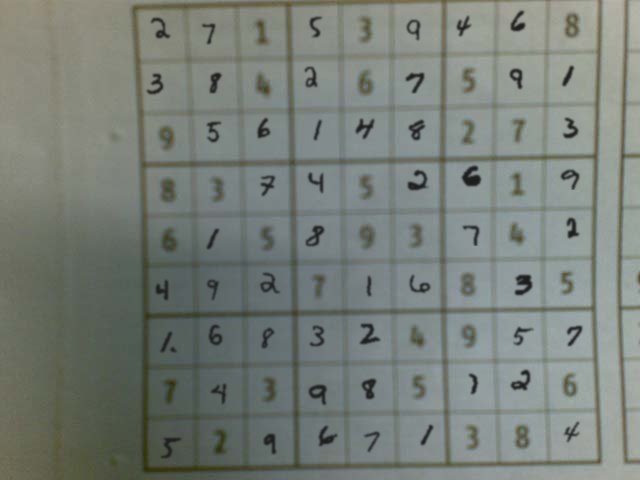 2 7 1 5 3 9 4 6 8
3 8 4 2 6 7 5 9 1
9 5 6 1 4 8 2 7 3
8 3 7 4 5 2 6 1 9
6 1 5 8 9 3 7 4 2
4 9 2 7 1 6 8 3 5
1. 6 8 3 2 4 9 5 7
7 4 3 9 8 5 1 2 6
5 2 9 6 7 1 3 8 4